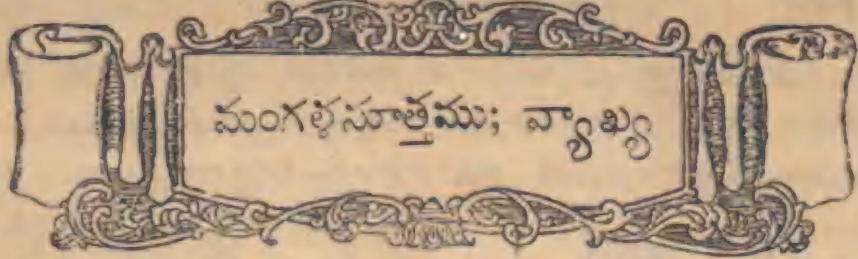 మంగళసూత్తము; వ్యాఖ్య